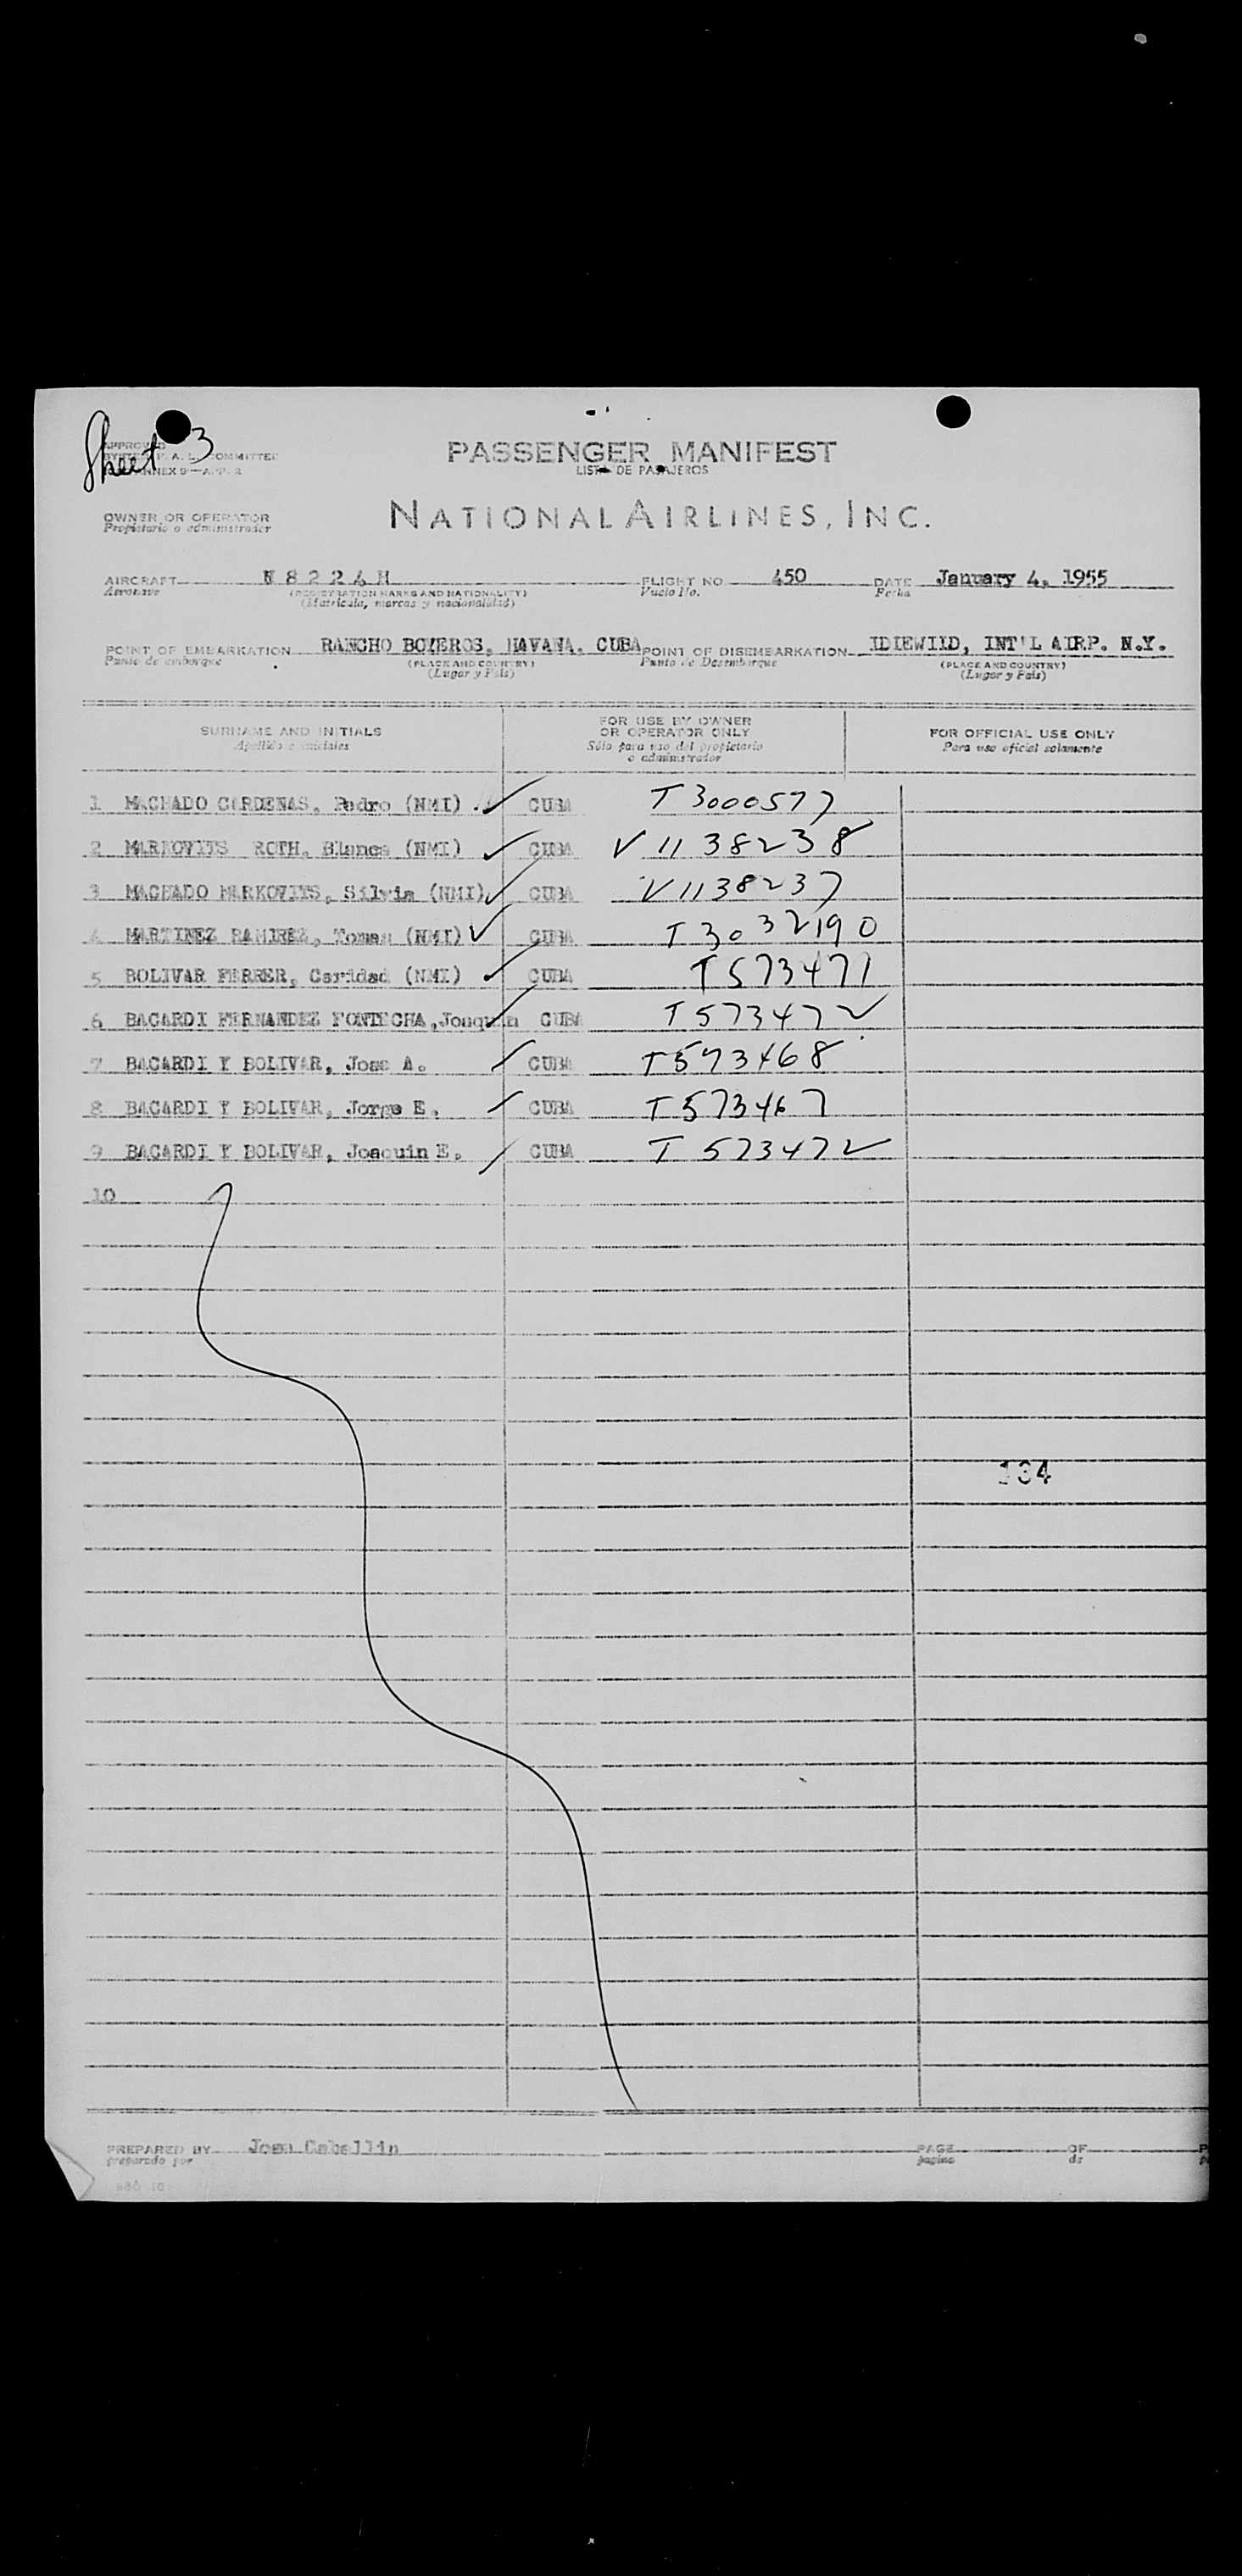 Sheet 3
PASSENGER MANIFEST
LISTA DE PASAJEROS
OWNER OR OPERATOR
Propietario o administrador
NATIONAL AIRLINES, INC.
AIRCRAFT N8224H FLIGHT NO. 450 DATE January 4, 1955
Aeronave (REGISTRATION MARKS AND NATIONALITY) Vuelo No. Fecha
(Matricula, marcas y nacionalidad)
POINT OF EMBARKATION RANCHO BOYEROS, HAVANA. CUBA POINT OF DISEMBARKATION IDIEWILD, INT'L AIRP. N.Y.
Punto de embarque (PLACE AND COUNTRY) Punto de Desembarque (PLACE AND COUNTRY)
(Lugar y País) (Lugar y País)
SURNAME AND INITIALS FOR USE BY OWNER OR OPERATOR ONLY FOR OFFICIAL USE ONLY
Apellido e iniciales Sólo para uso del propietario o administrador Para uso oficial solamente
1 MACHADO CARDENAS, Pedro (NMI) CUBA T3000577
2 MARKOVITS ROTH, Blanca (NMI) CUBA V1138238
3 MACHADO MARKOVITS, Silvia (NMI) CUBA V1138237
4 MARTINEZ RAMIREZ, Tomas (NMI) CUBA T3032190
5 BOLIVAR FERRER, Caridad (NMI) CUBA T573471
6 BACARDI FERNANDEZ FONTECHA, Joaquin CUBA T573472
7 BACARDI Y BOLIVAR, Jose A. CUBA T573468
8 BACARDI Y BOLIVAR, Jorge E. CUBA T573467
9 BACARDI Y BOLIVAR, Joaquin E. CUBA T573472
10
134
PREPARED BY PAGE OF
preparado por pagina de